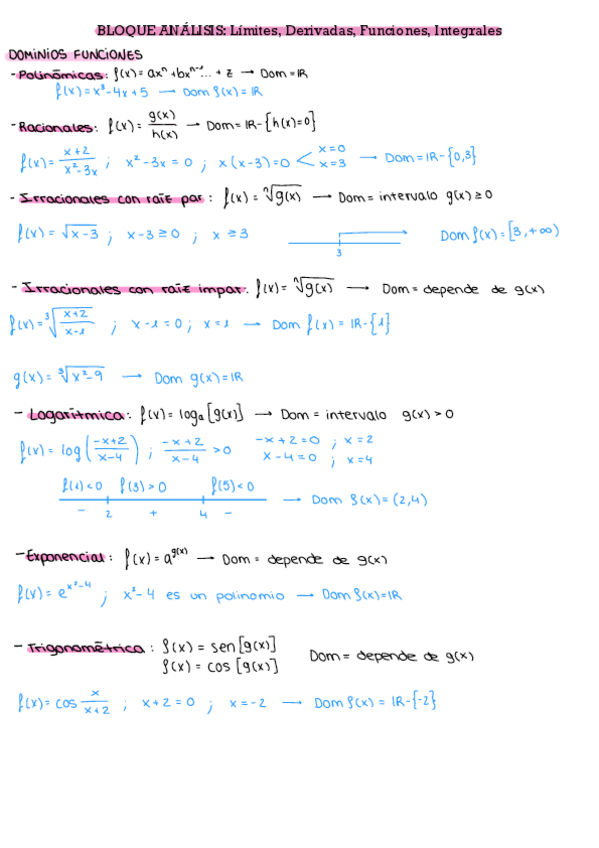 BLOQUE ANÁLISIS: Límites, Derivadas, Funciones, Integrales
DOMINIOS FUNCIONES
- Polinómicas: f(x) = axⁿ + bxⁿ⁻¹... + z → Dom = IR
f(x) = x³-4x+5 → Dom f(x) = IR
- Racionales: f(x) = g(x)/h(x) → Dom = IR-{h(x)=0}
f(x) = (x+2)/(x²-3x) ; x²-3x = 0 ; x(x-3)=0 < x=0 x=3 → Dom = IR-{0,3}
- Irracionales con raíz par: f(x) = ⁿ√g(x) → Dom = intervalo g(x) ≥ 0
f(x) = √x-3 ; x-3 ≥ 0 ; x ≥ 3 Dom f(x) = [3, +∞)
3
- Irracionales con raíz impar: f(x) = ⁿ√g(x) → Dom = depende de g(x)
f(x) = ³√(x+2)/(x-1) ; x-1 = 0 ; x=1 → Dom f(x) = IR-{1}
g(x) = ³√x²-9 → Dom g(x) = IR
- Logarítmica: f(x) = logₐ[g(x)] → Dom = intervalo g(x) > 0
f(x) = log((-x+2)/(x-4)) ; (-x+2)/(x-4) > 0 -x+2=0 ; x=2
x-4=0 ; x=4
f(1)<0 f(3)>0 f(5)<0
- 2 + 4 - → Dom f(x) = (2,4)
- Exponencial: f(x) = a^g(x) → Dom = depende de g(x)
f(x) = e^x²-4 ; x²-4 es un polinomio → Dom f(x) = IR
- Trigonométrica: f(x) = sen[g(x)]
f(x) = cos[g(x)] Dom = depende de g(x)
f(x) = cos x/(x+2) ; x+2 = 0 ; x = -2 → Dom f(x) = IR-{-2}